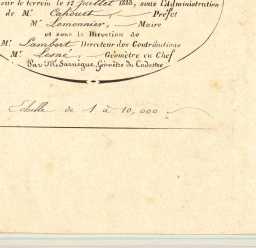 sur le terrein le 17 Juillet 1835, sous l'Administration
de Mr. Cahouet, Préfet
Mr. Lemonnier, Maire
et sous la Direction de
Mr. Lambert Directeur des Contributions
Mr. Géomètre en Chef
Par Mr. Géomètre du Cadastre
Echelle de 1 à 10,000